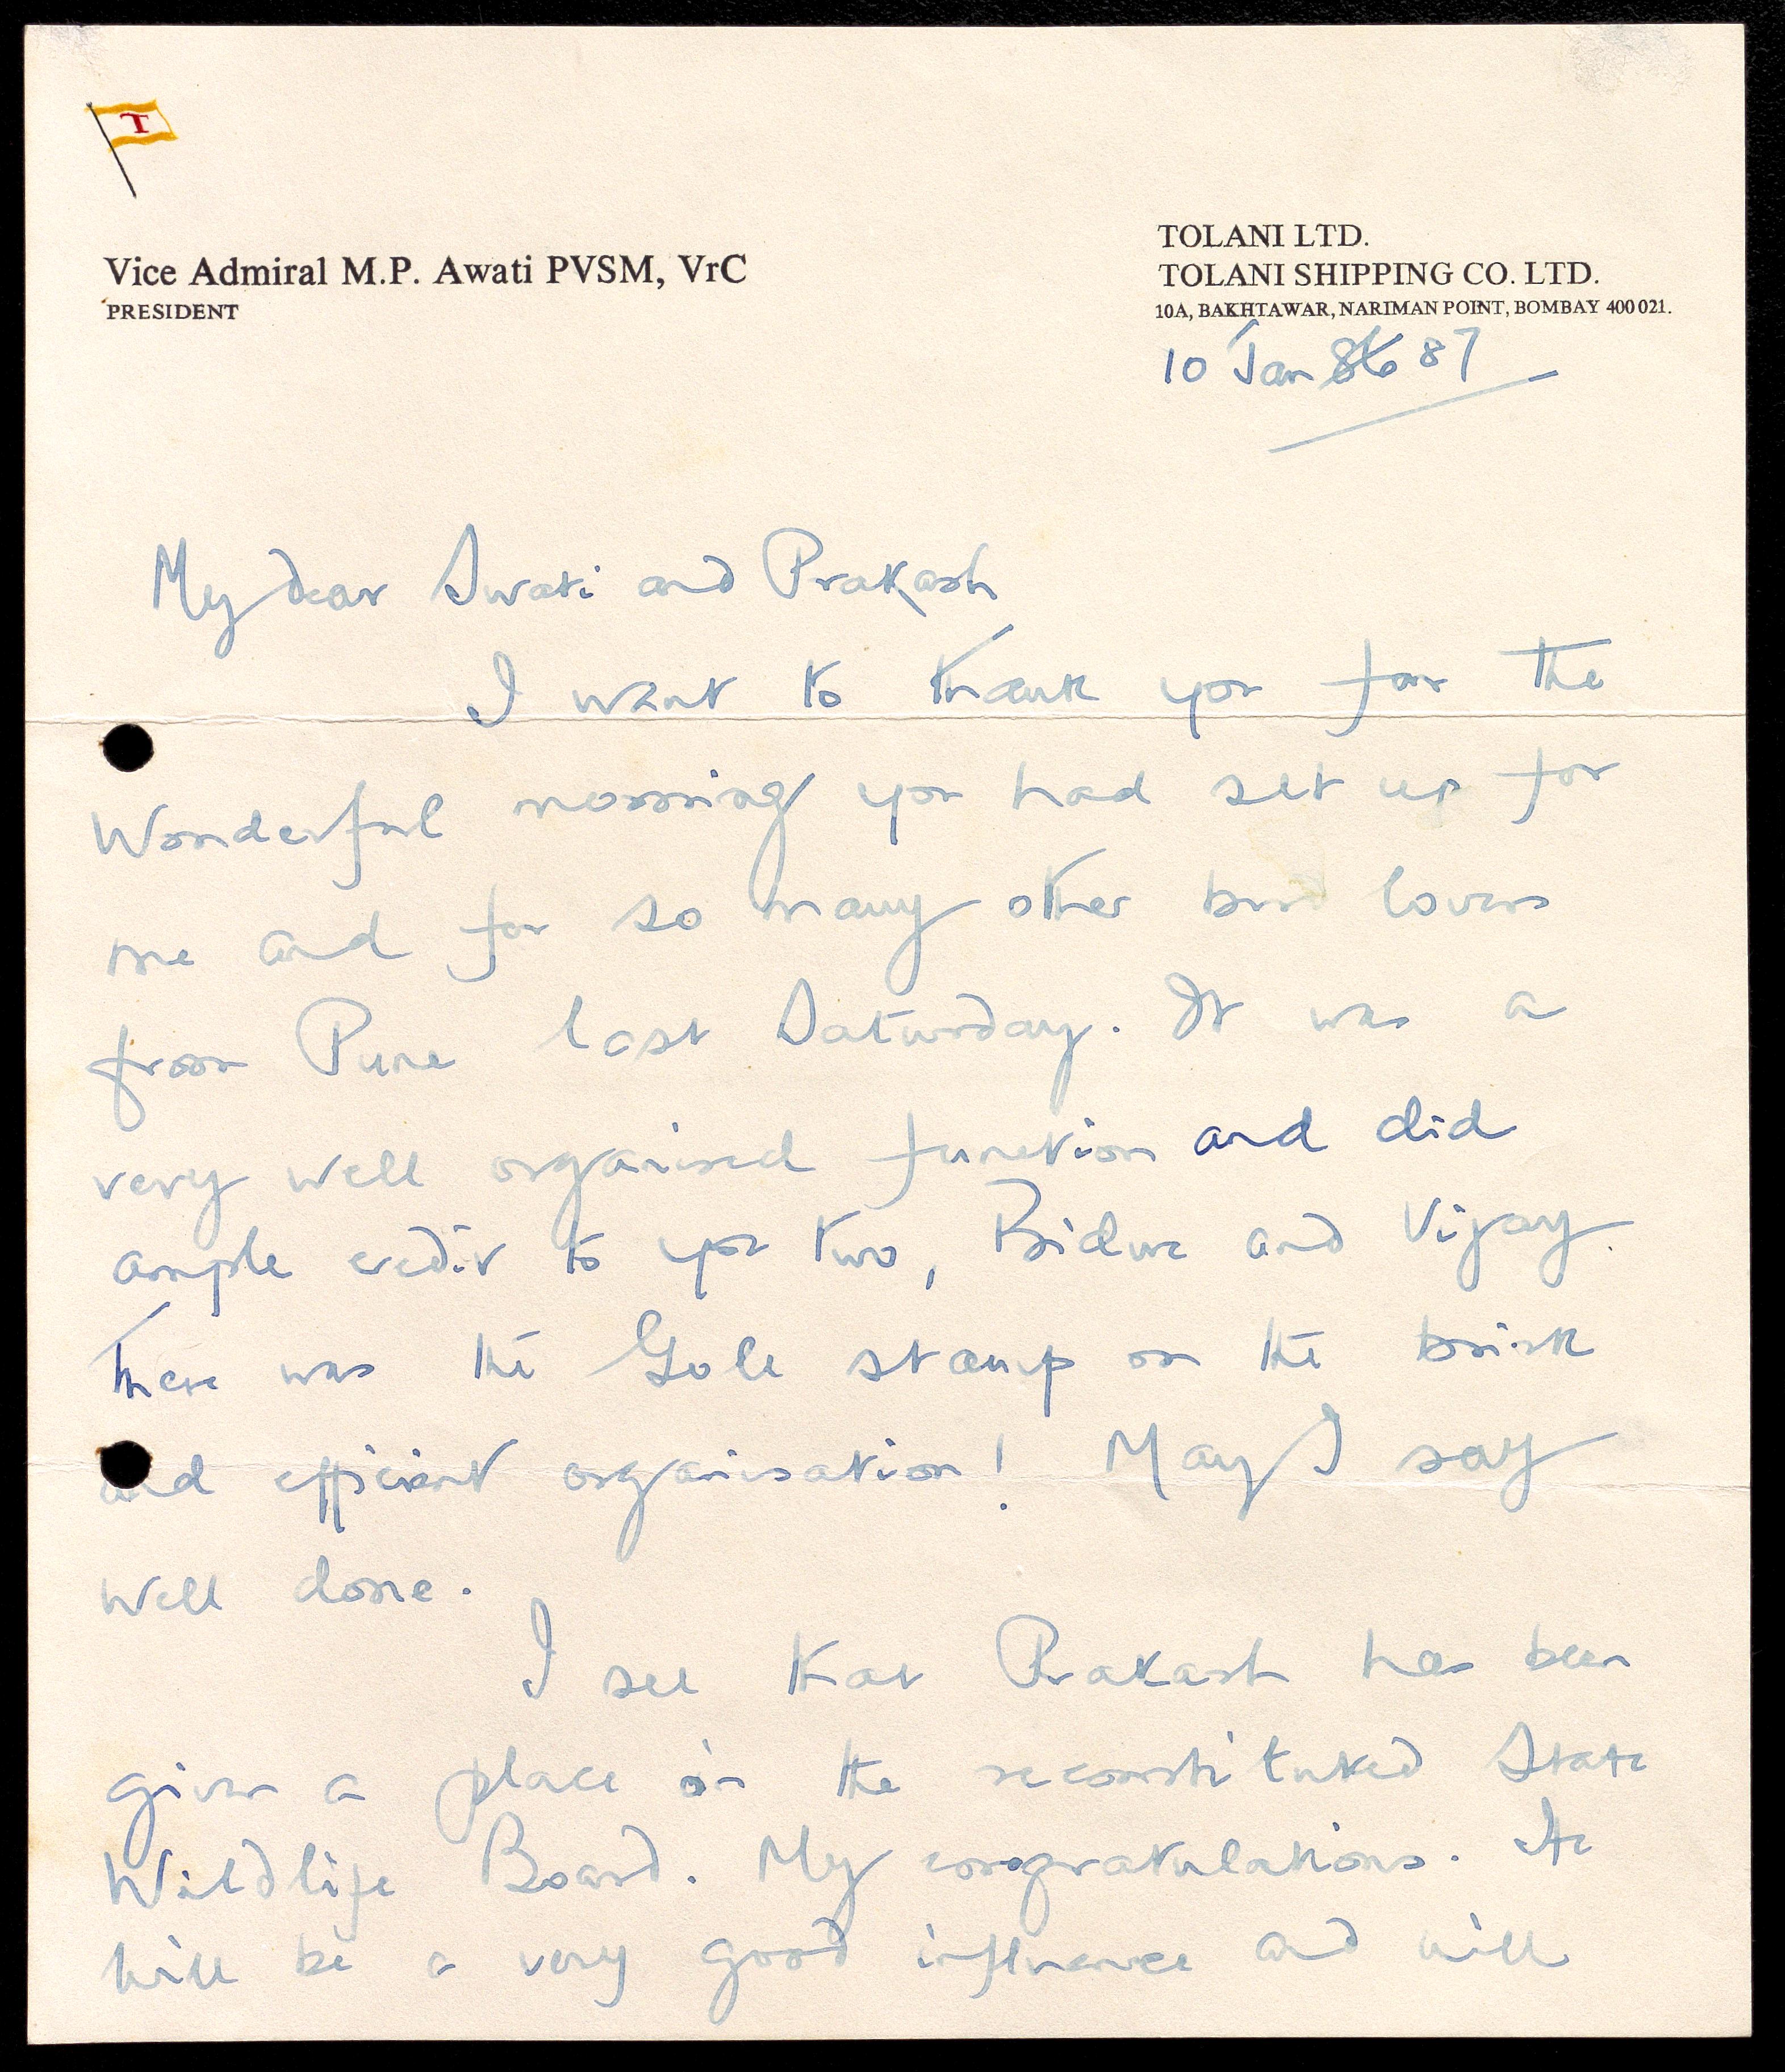 T
Vice Admiral M.P. Awati PVSM, VrC
PRESIDENT
TOLANI LTD.
TOLANI SHIPPING CO. LTD.
10A, BAKHTAWAR, NARIMAN POINT, BOMBAY 400 021.
10 Jan 86 87
My dear Swati and Prakash
I want to thank you for the
Wonderful morning you had set up for
me and for so many other bird lovers
from Pune last Saturday. It was a
very well organised function and did
ample credit to you two, and Vijay.
There was the Gole stamp on the brisk
and efficient organisation! May I say
well done.
I see that Prakash has been
given a place in the reconstituted State
Wildlife Board. My congratulations. He
will be a very good influence and will